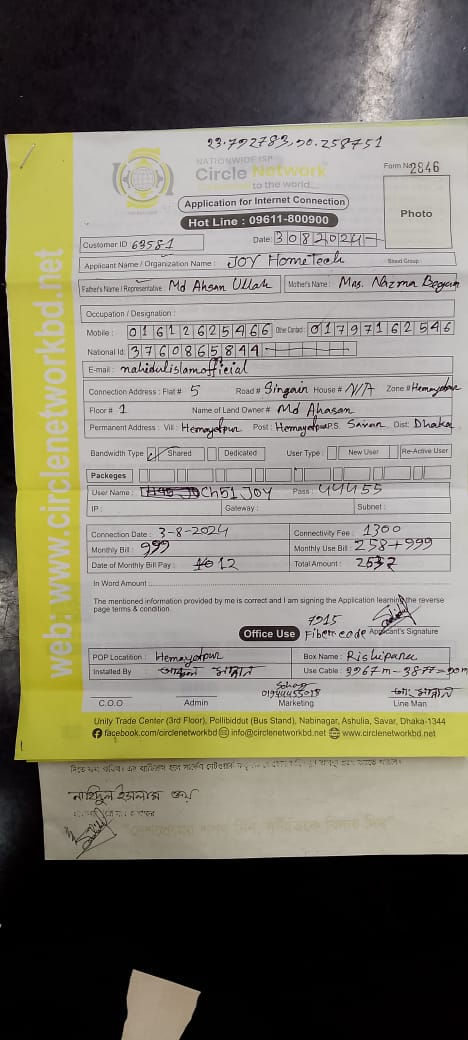 23.792783,90.258751
NATIONWIDE ISP
Circle Network
to the world...
Form No 2846
Application for Internet Connection
Photo
Hot Line : 09611-800900
Customer ID 63581
Date: 3 0 8 2 0 2 4
Applicant Name / Organization Name : JOY HomeTech Blood Group :
Father's Name / Representative : Md Ahsan Ullah Mother's Name : Mrs. Nazma Begum
Occupation / Designation :
Mobile : 0 1 6 1 2 6 2 5 4 6 6 Other Contact : 0 1 7 9 7 1 6 2 5 4 6
National Id: 3 7 6 0 8 6 5 8 4 4
E-mail : nahidulislamofficial
Connection Address : Flat # 5 Road # Singair House # N/A Zone # Hemayetpur
Floor # 1 Name of Land Owner # Md Ahasan
Permanent Address : Vill : Hemayetpur Post : Hemayetpur P.S. Savar Dist: Dhaka
Bandwidth Type Shared Dedicated User Type : New User Re-Active User
Packeges
User Name : Ch51 JOY Pass : 44455
IP : Gateway : Subnet :
Connection Date : 3-8-2024 Connectivity Fee : 1300
Monthly Bill : 999 Monthly Use Bill : 258+999
Date of Monthly Bill Pay : 12 Total Amount :
In Word Amount :
The mentioned information provided by me is correct and I am signing the Application learning the reverse
page terms & condition.
7915
Office Use Fiber code Applicant's Signature
POP Locatition : Hemayetpur Box Name : Rishipara
Installed By Use Cable : 9967m - 3877=90m
01944455015
C.O.O Admin Marketing Line Man
Unity Trade Center (3rd Floor), Pollibiddut (Bus Stand), Nabinagar, Ashulia, Savar, Dhaka-1344
facebook.com/circlenetworkbd info@circlenetworkbd.net www.circlenetworkbd.net
web: www.circlenetworkbd.net
নাহিদুল ইসলাম জয়